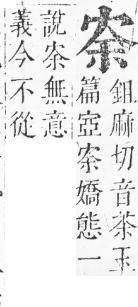 鉏麻切音茶玉
篇嬌態一
說無意
義今不從